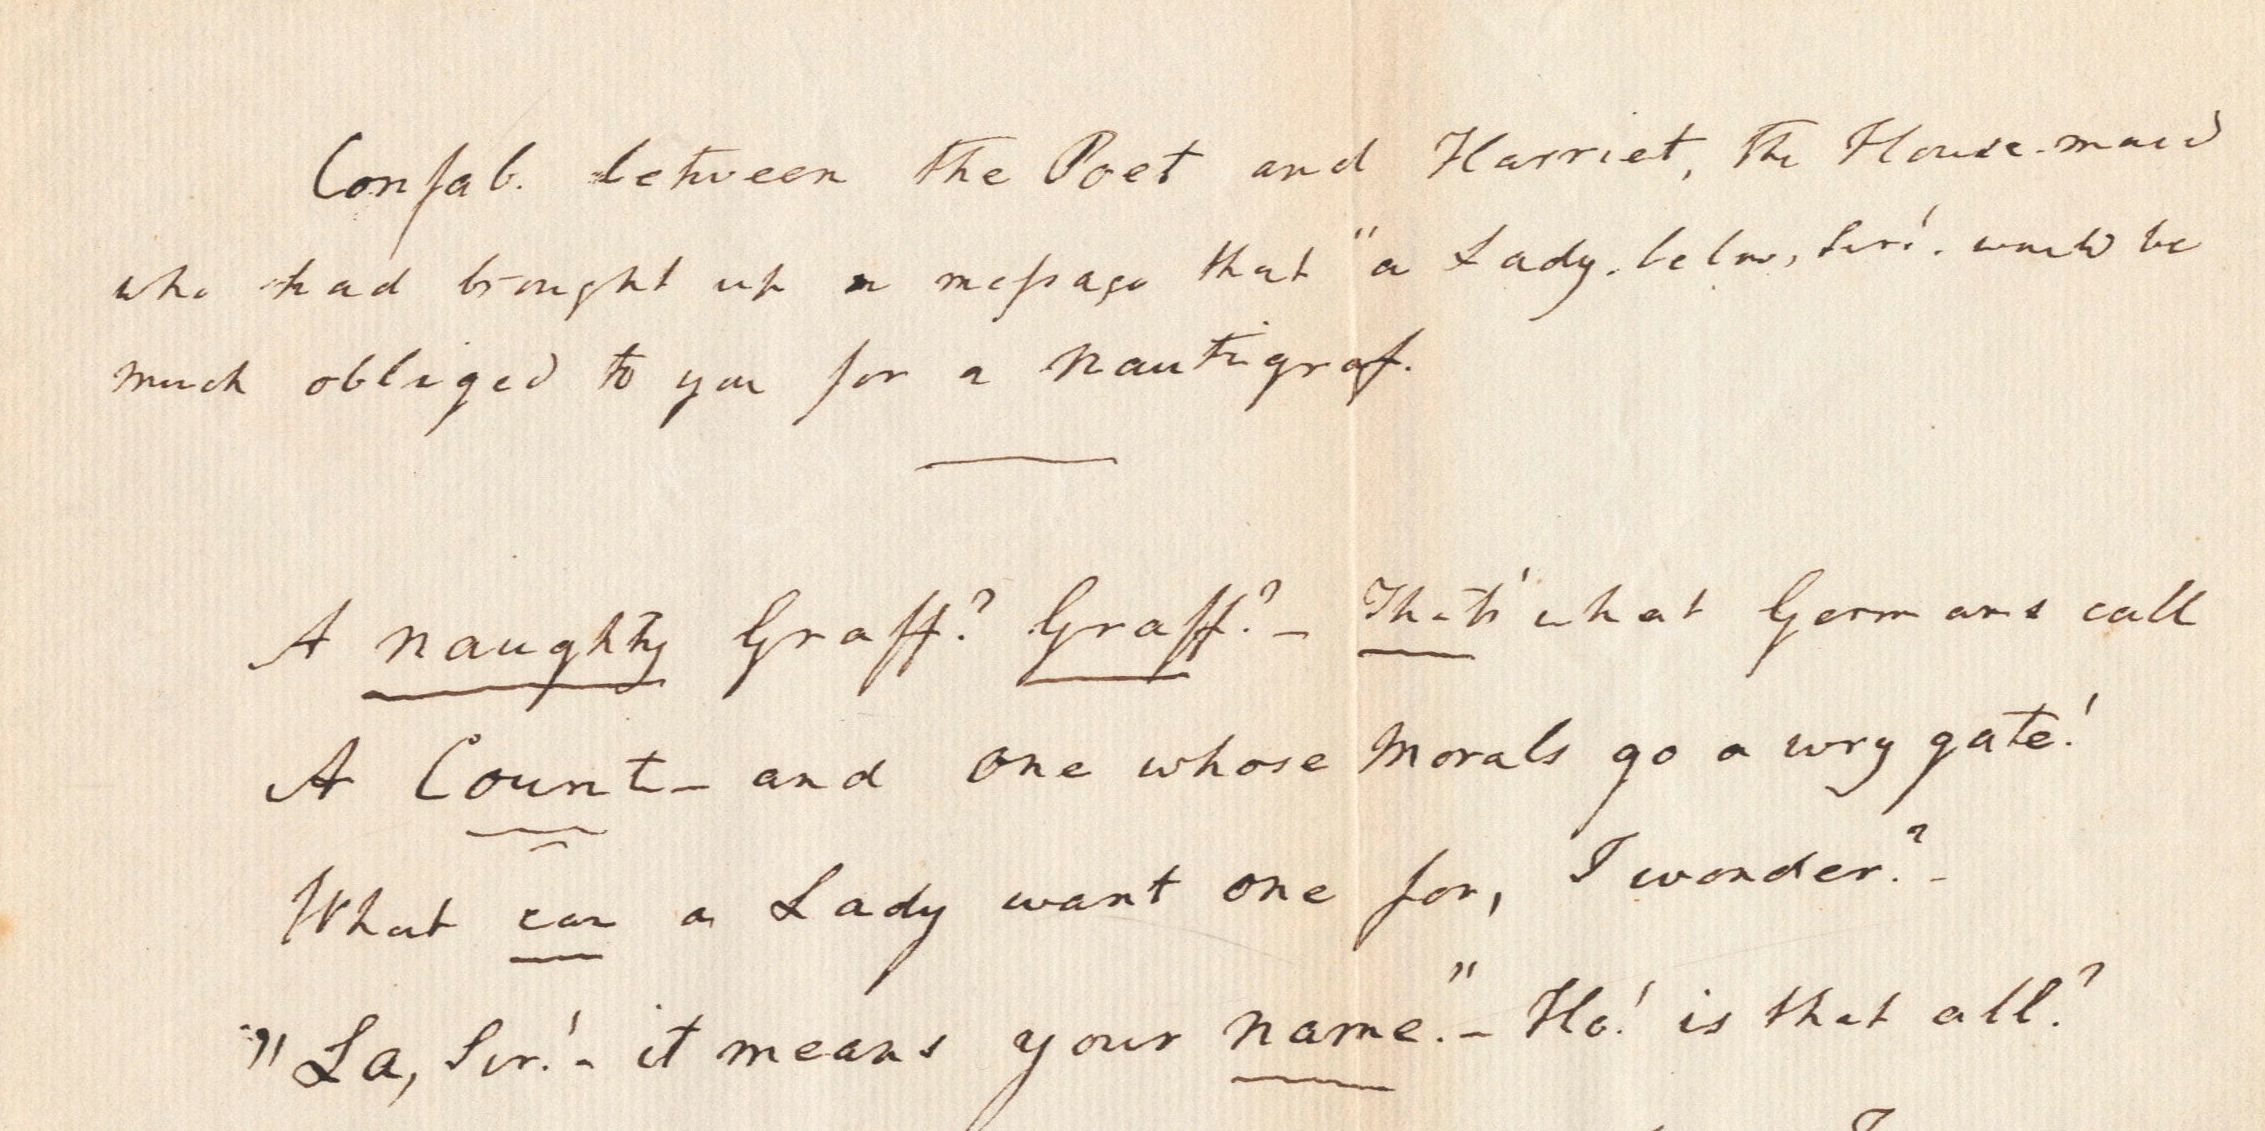 Confab. between the Poet and Harriet, the House-maid
who had brought up a message that "a Lady, below, Sir!, would be
much obliged to you for a nautigraf.
A naughty Graff? Graff?— That's what Germans call
A Count— and one whose Morals go a wry gate!
What can a Lady want one for, I wonder?—
"La, Sir!— it means your name."— Ho! is that all?